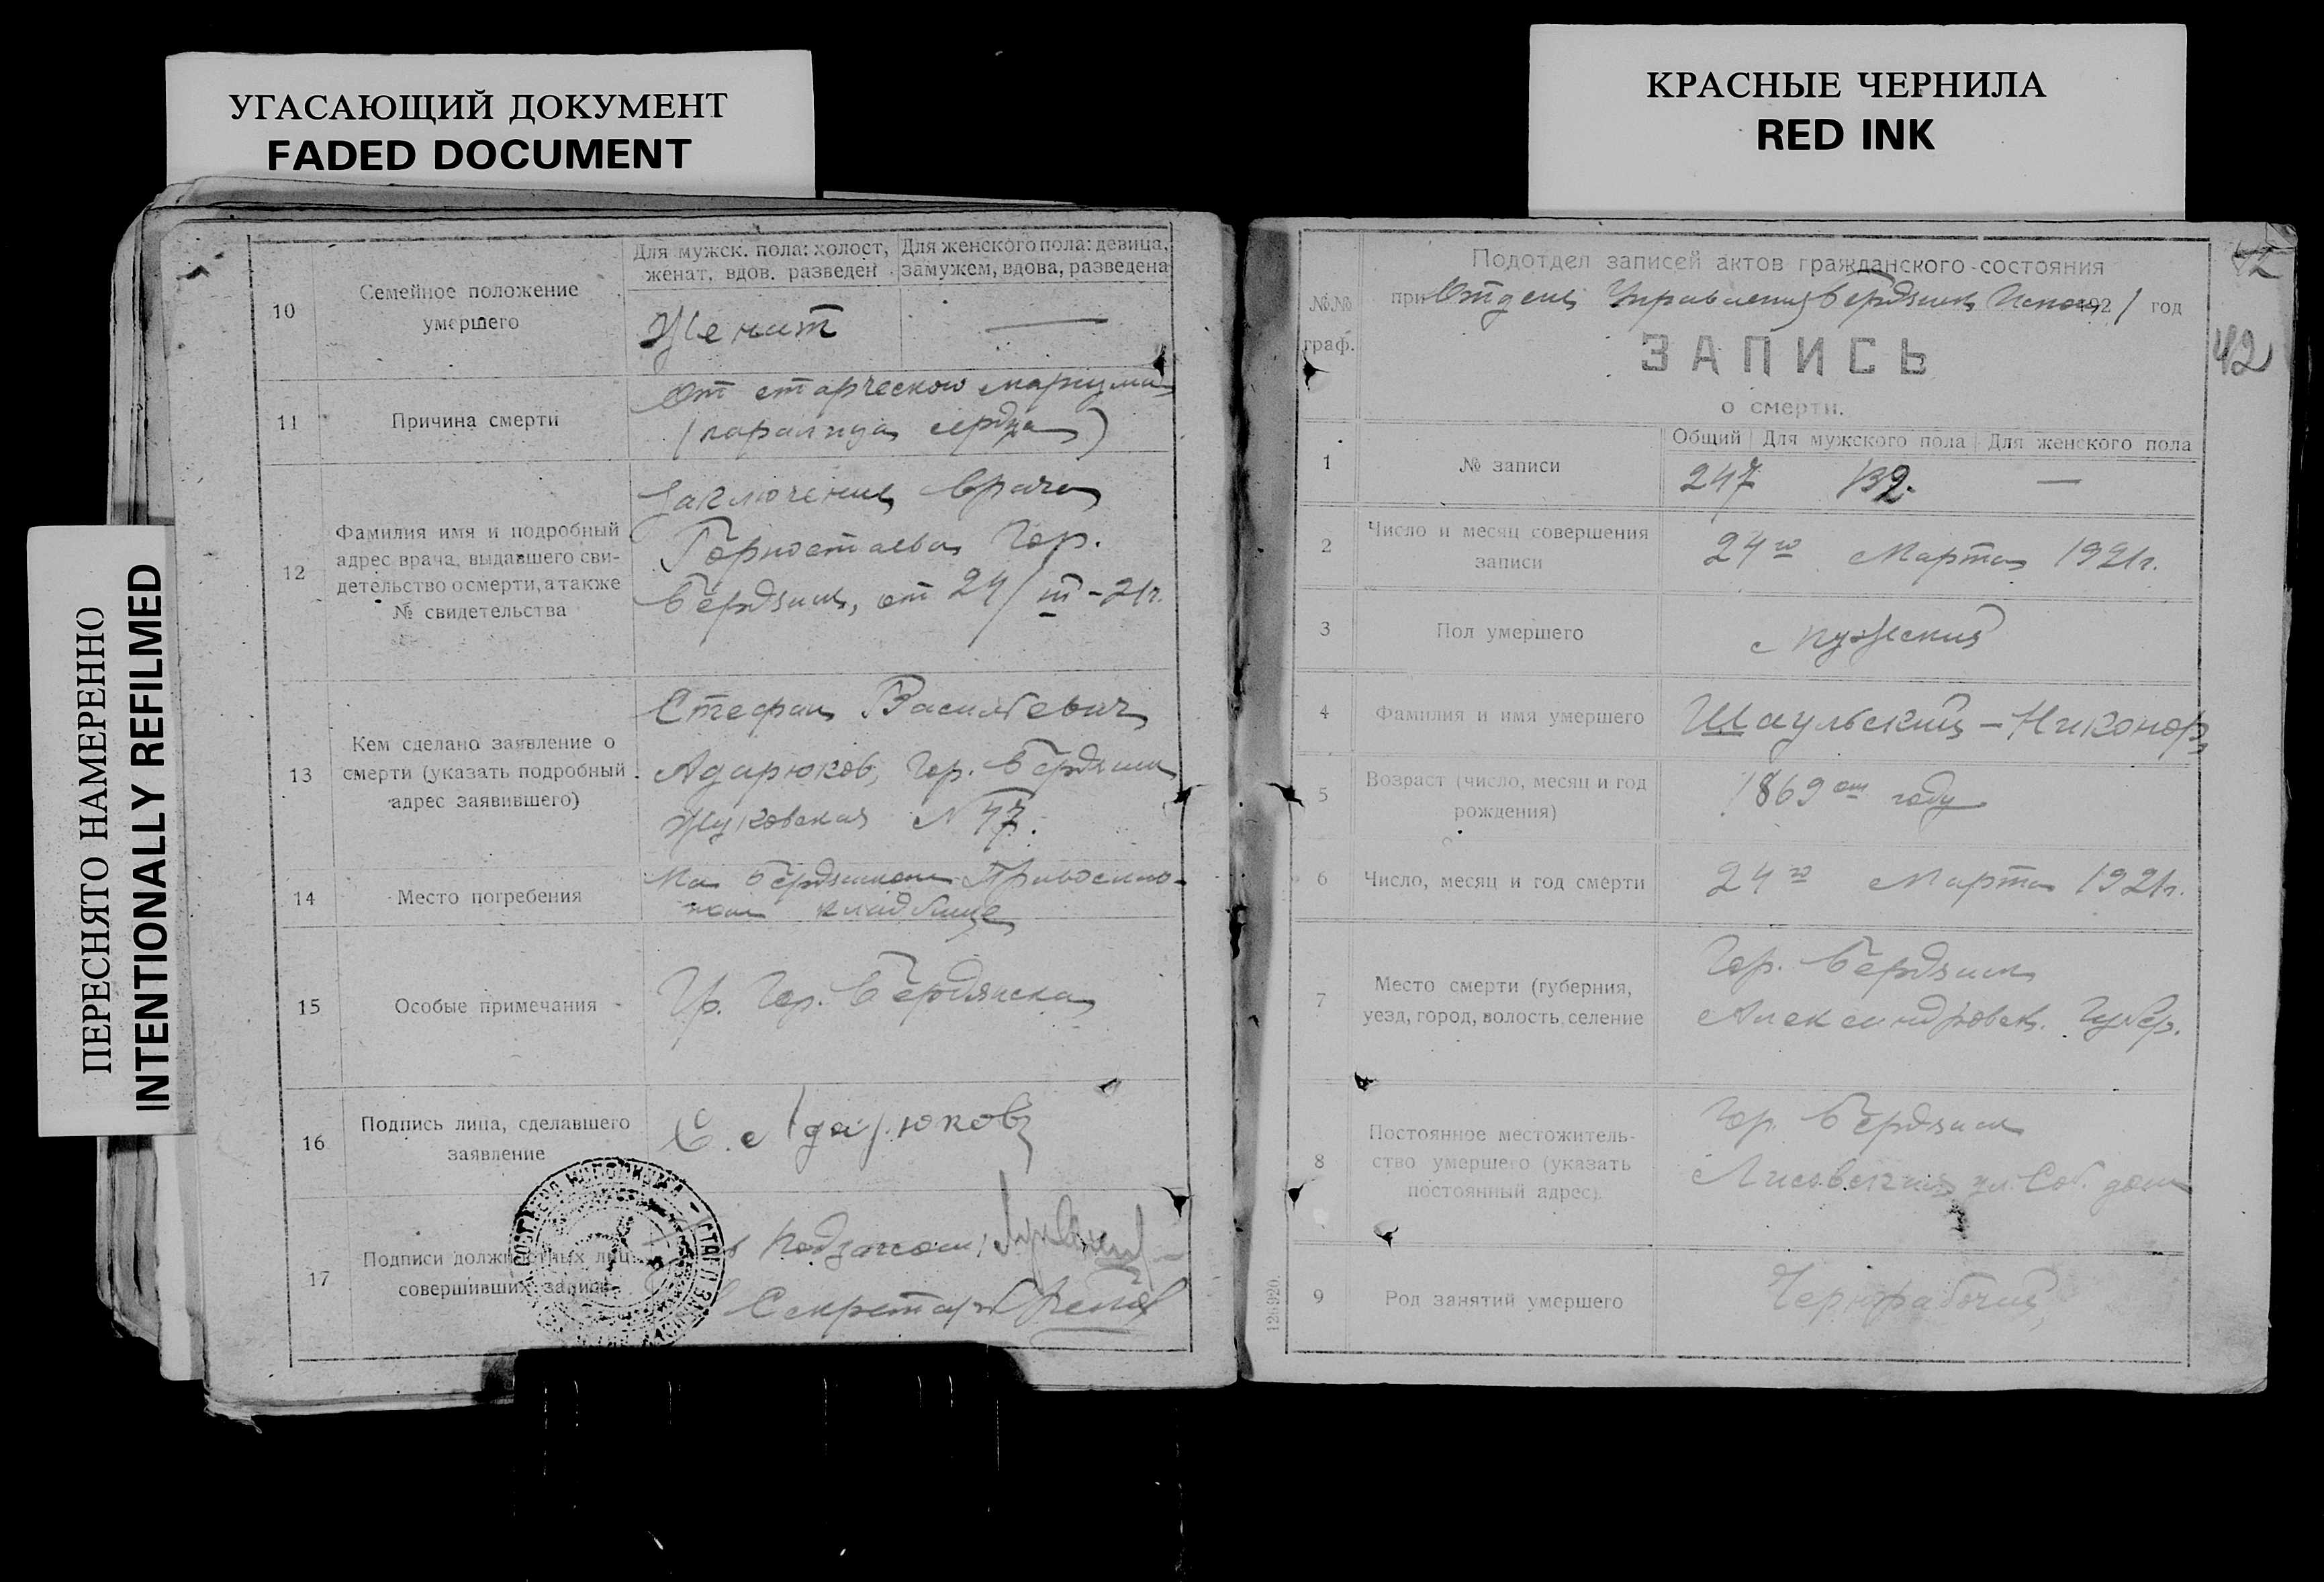 УГАСАЮЩИЙ ДОКУМЕНТ
FADED DOCUMENT
КРАСНЫЕ ЧЕРНИЛА
RED INK
ПЕРЕСНЯТО НАМЕРЕННО
INTENTIONALLY REFILMED
10
Семейное положение
умершего
Для мужск. пола: холост,
женат, вдов. разведен
Для женского пола: девица,
замужем, вдова, разведена
Женат
—
11
Причина смерти
От старческого маразма
(паралича сердца)
12
Фамилия имя и подробный
адрес врача, выдавшего сви-
детельство о смерти, а также
№ свидетельства
Заключение врача
Горностаева Гор.
Бердянск, от 24/III-21г.
13
Кем сделано заявление о
смерти (указать подробный
адрес заявившего)
Стефан Васильевич
Адарюков, Гор. Бердянск
Жуковская № 47.
14
Место погребения
На Бердянском
кладбище
15
Особые примечания
Гр. Гор. Бердянска
16
Подпись лица, сделавшего
заявление
С. Адарюковъ
17
Подписи должностных лиц
совершивших запись
Секретарь
42
42
№№
граф.
Подотдел записей актов гражданского состояния
при Отделе Управления Бердянск. 1921 год
ЗАПИСЬ
о смерти.
1
№ записи
Общий Для мужского пола Для женского пола
247 132. —
2
Число и месяц совершения
записи
24го Марта 1921г.
3
Пол умершего
Мужской
4
Фамилия и имя умершего
Шаульский - Никонор
5
Возраст (число, месяц и год
рождения)
1869 ом году
6
Число, месяц и год смерти
24го Марта 1921г.
7
Место смерти (губерния,
уезд, город, волость, селение
Гор. Бердянск
Александровск. Губер.
8
Постоянное местожитель-
ство умершего (указать
постоянный адрес).
Гор. Бердянск
ул. Соб. дом
9
Род занятий умершего
Чернорабочий